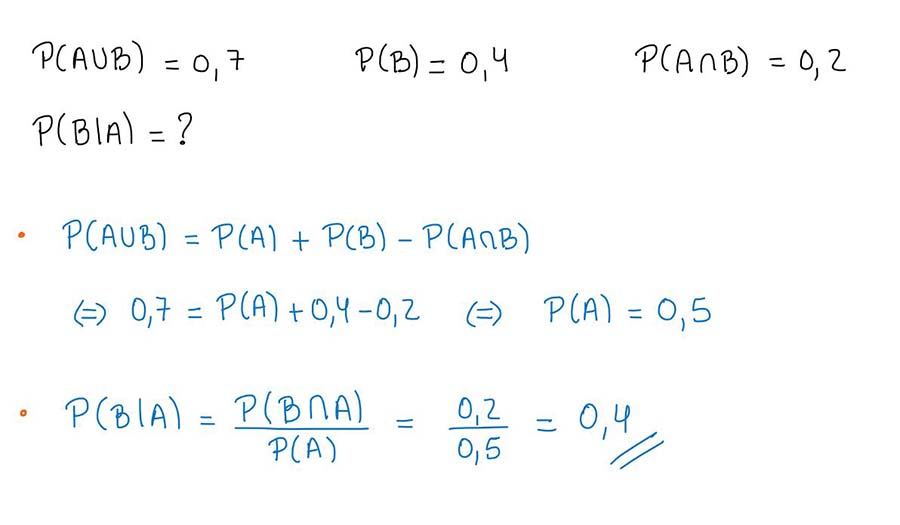 P(A∪B) = 0,7 P(B) = 0,4 P(A∩B) = 0,2
P(B|A) = ?
• P(A∪B) = P(A) + P(B) - P(A∩B)
⇔ 0,7 = P(A) + 0,4 - 0,2 ⇔ P(A) = 0,5
• P(B|A) = P(B∩A) / P(A) = 0,2 / 0,5 = 0,4